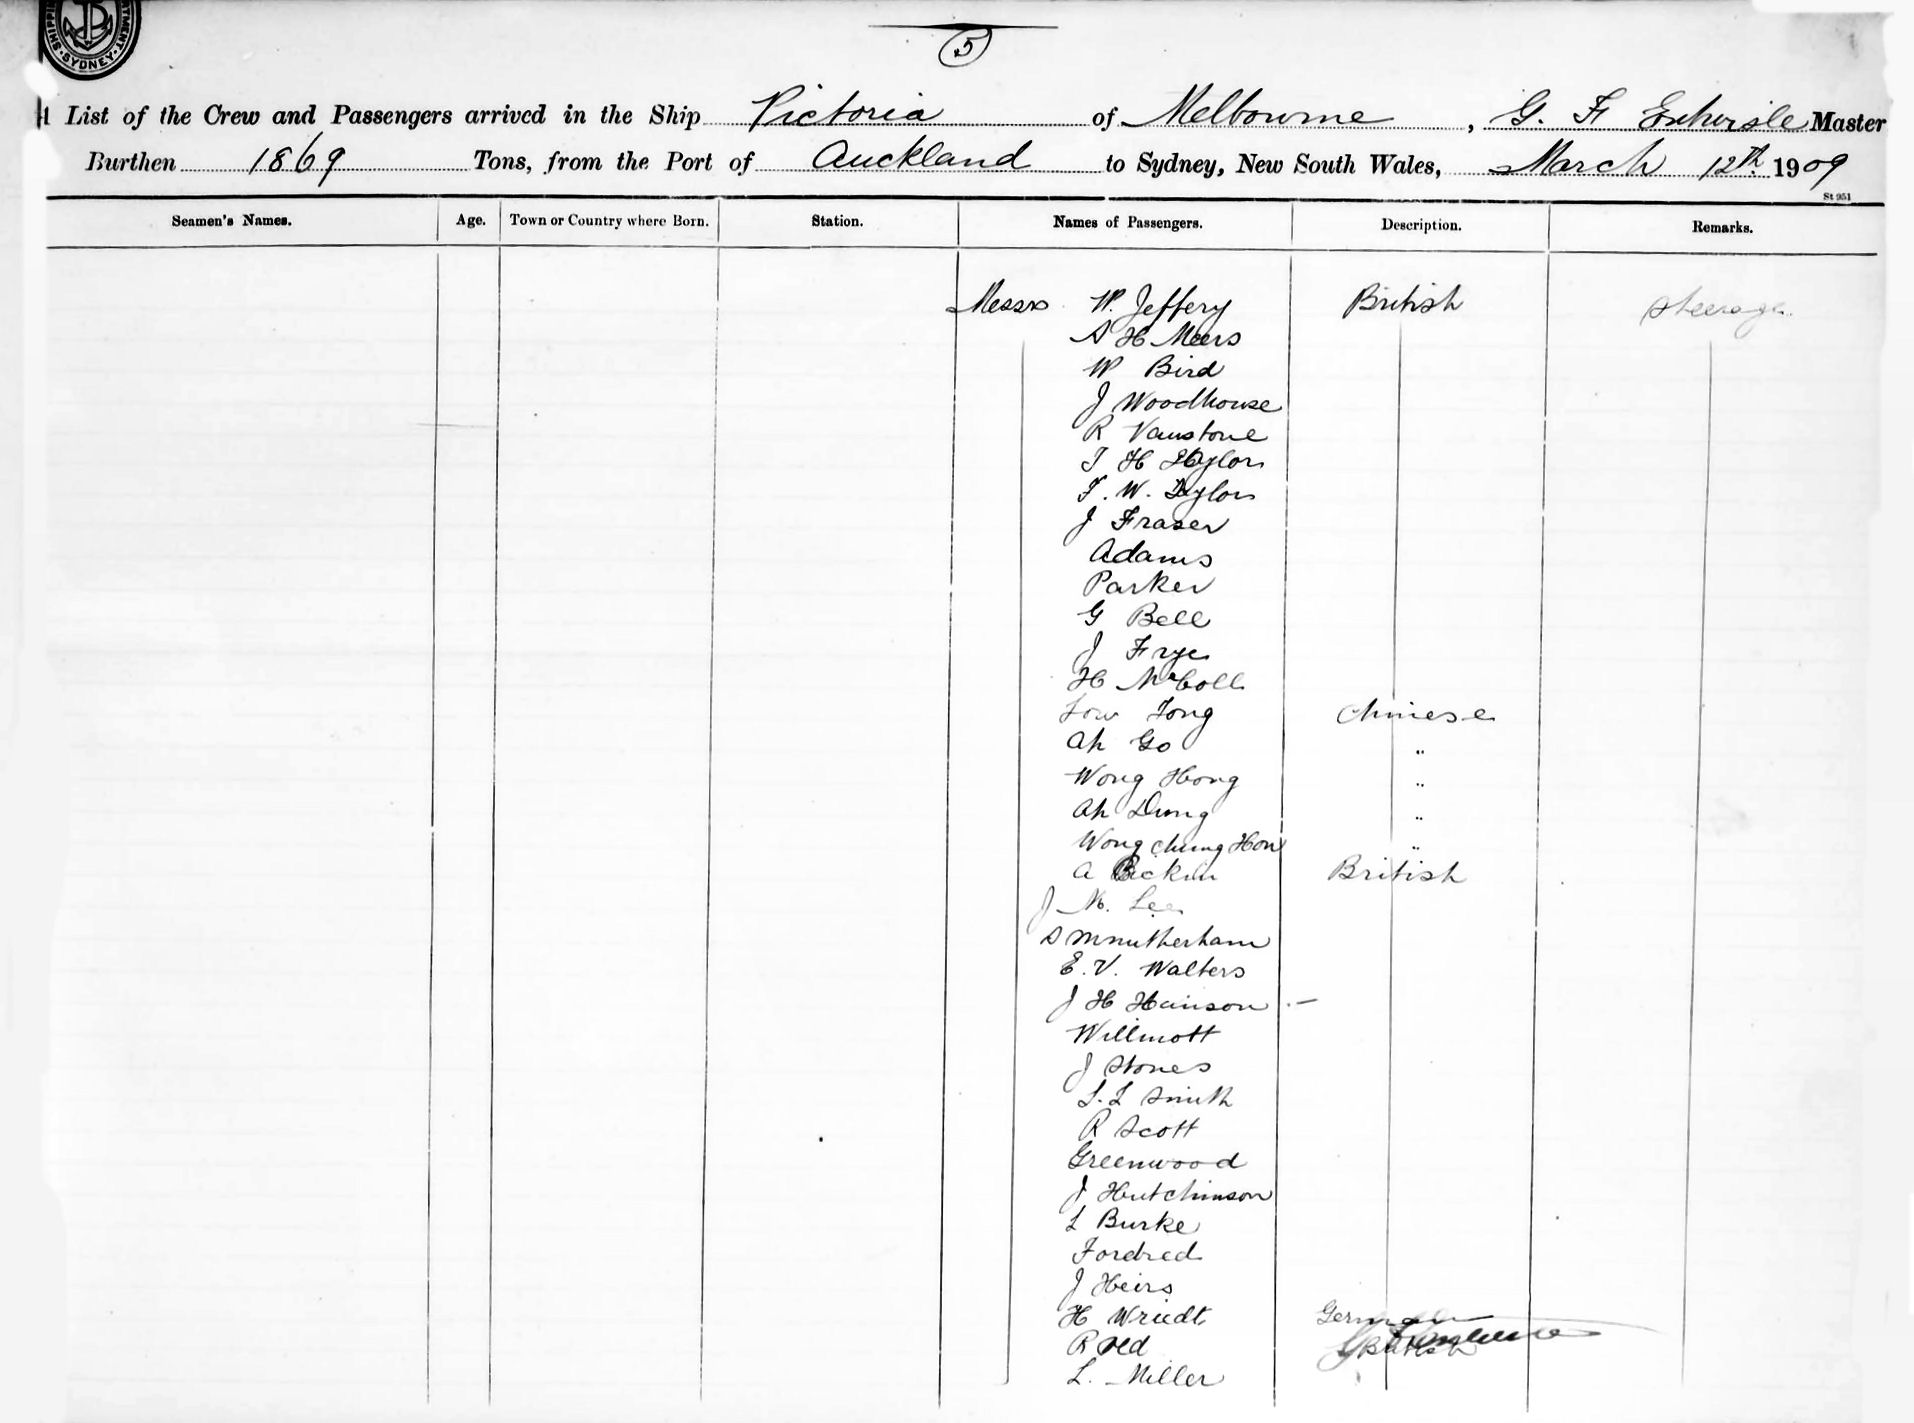 SYDNEY
5
List of the Crew and Passengers arrived in the Ship Victoria of Melbourne, G. F. Master
Burthen 1869 Tons, from the Port of Auckland to Sydney, New South Wales, March 12th 1909
St 951
Seamen's Names. Age. Town or Country where Born. Station. Names of Passengers. Description. Remarks.
Messrs W. Jeffery British Steerage
S H Meers
W Bird
J Woodhouse
R Vanstone
T H Taylor
F. W. Taylor
J Fraser
Adams
Parker
G Bell
J Frye
H McColl
Low Tong Chinese
Ah Go "
Wong Hong "
Ah Dung "
Wong Chung Hon "
A British
J M. Lee
S
E. V. Walters
J H Hanson
Willmott
J Stones
S. L Smith
R Scott
Greenwood
J Hutchinson
L Burke
Fordred
J Heirs
H Wriedt German
R British
L. Miller